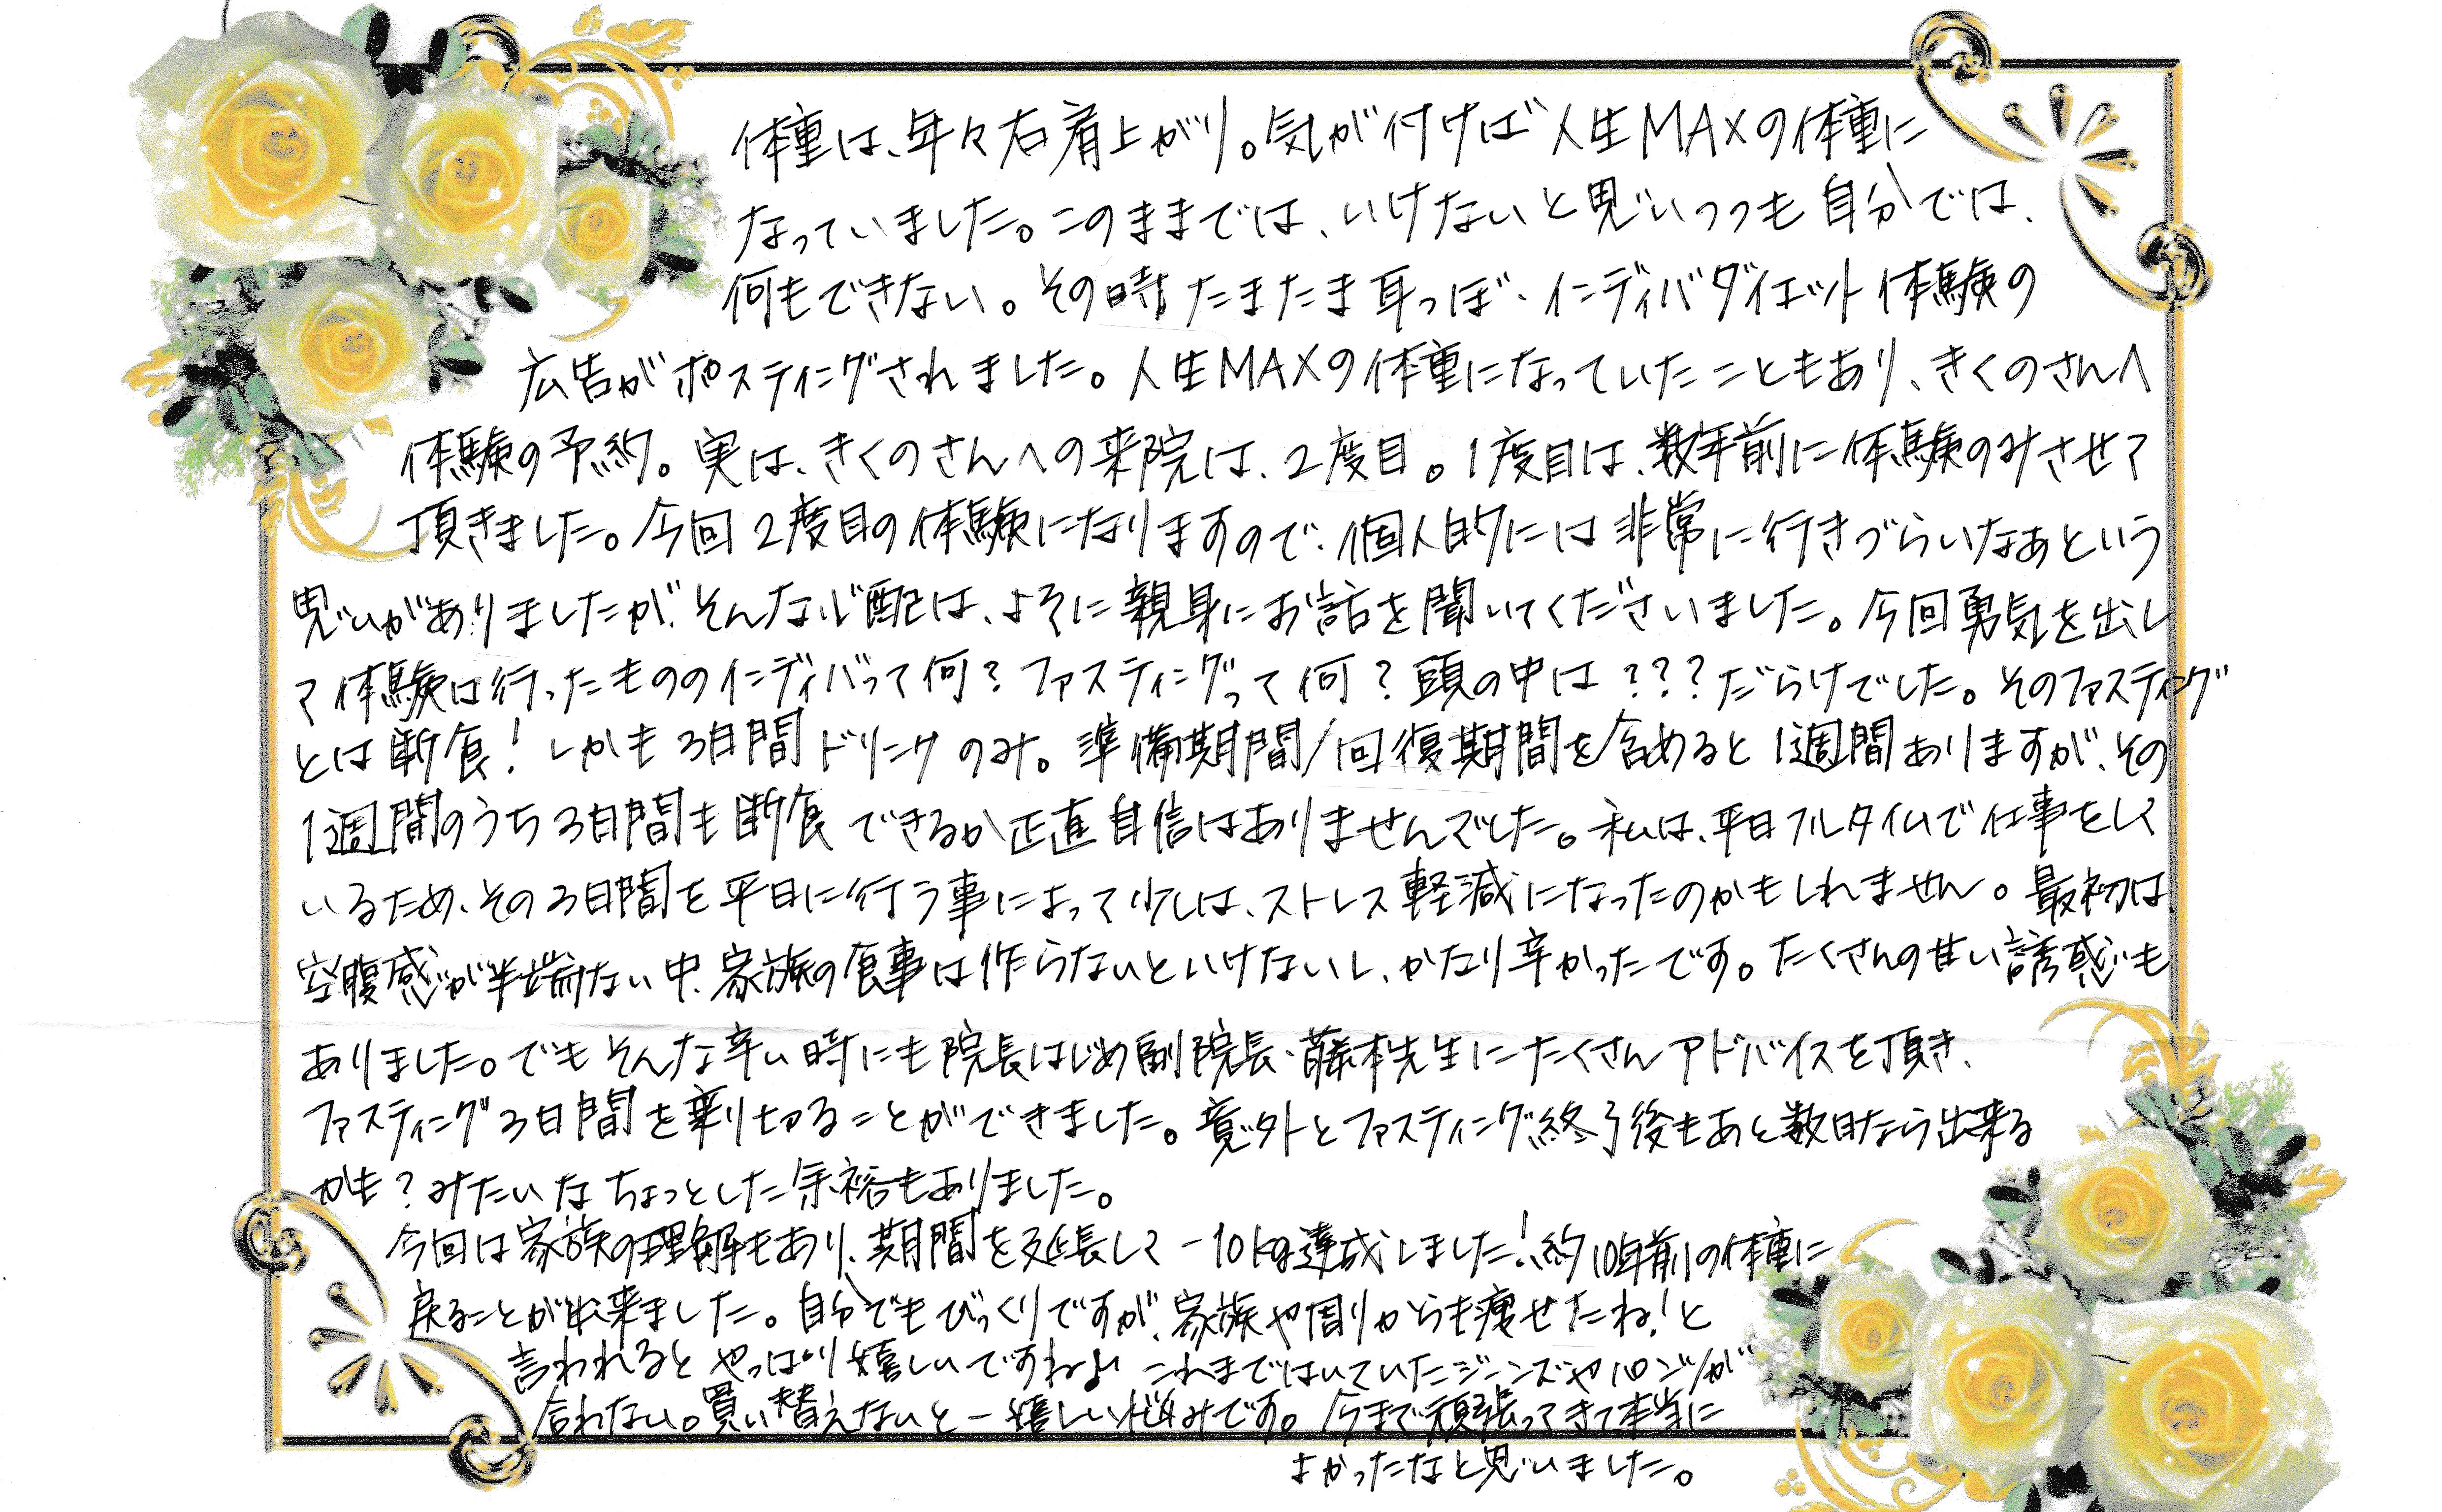 体重は、年々右肩上がり。気が付けば人生MAXの体重に
なっていました。このままでは、いけないと思いつつも自分では、
何もできない。その時たまたま耳つぼ・インディバダイエット体験の
広告がポスティングされました。人生MAXの体重になっていたこともあり、きくのさんへ
体験の予約。実は、きくのさんへの来院は、2度目。1度目は、数年前に体験のみさせて
頂きました。今回2度目の体験になりますので、個人的には非常に行きづらいなあという
思いがありましたが、そんな心配は、よそに親身にお話を聞いてくださいました。今回勇気を出し
て体験は行ったもののインディバって何?ファスティングって何?頭の中は???だらけでした。そのファスティング
とは断食!しかも3日間ドリンクのみ。準備期間/回復期間を含めると1週間ありますが、その
1週間のうち3日間も断食できるか正直自信はありませんでした。私は、平日フルタイムで仕事をして
いるため、その3日間を平日に行う事によって少しは、ストレス軽減になったのかもしれません。最初は、
空腹感が半端ない中、家族の食事は作らないといけないし、かなり辛かったです。たくさんの甘い誘惑も
ありました。でもそんな辛い時にも院長はじめ副院長、藤本先生にたくさんアドバイスを頂き、
ファスティング3日間を乗り切ることができました。意外とファスティング終了後もあと数日なら出来る
かも?みたいなちょっとした余裕もありました。
今回は家族の理解もあり、期間を延長して-10kg達成しました!約10年前の体重に
戻ることが出来ました。自分でもびっくりですが、家族や周りからも痩せたね!と
言われるとやっぱり嬉しいですね♪ これまではいていたジーンズやパンツが
合わない。買い替えないと－嬉しい悩みです。今まで頑張ってきて本当に
よかったなと思いました。